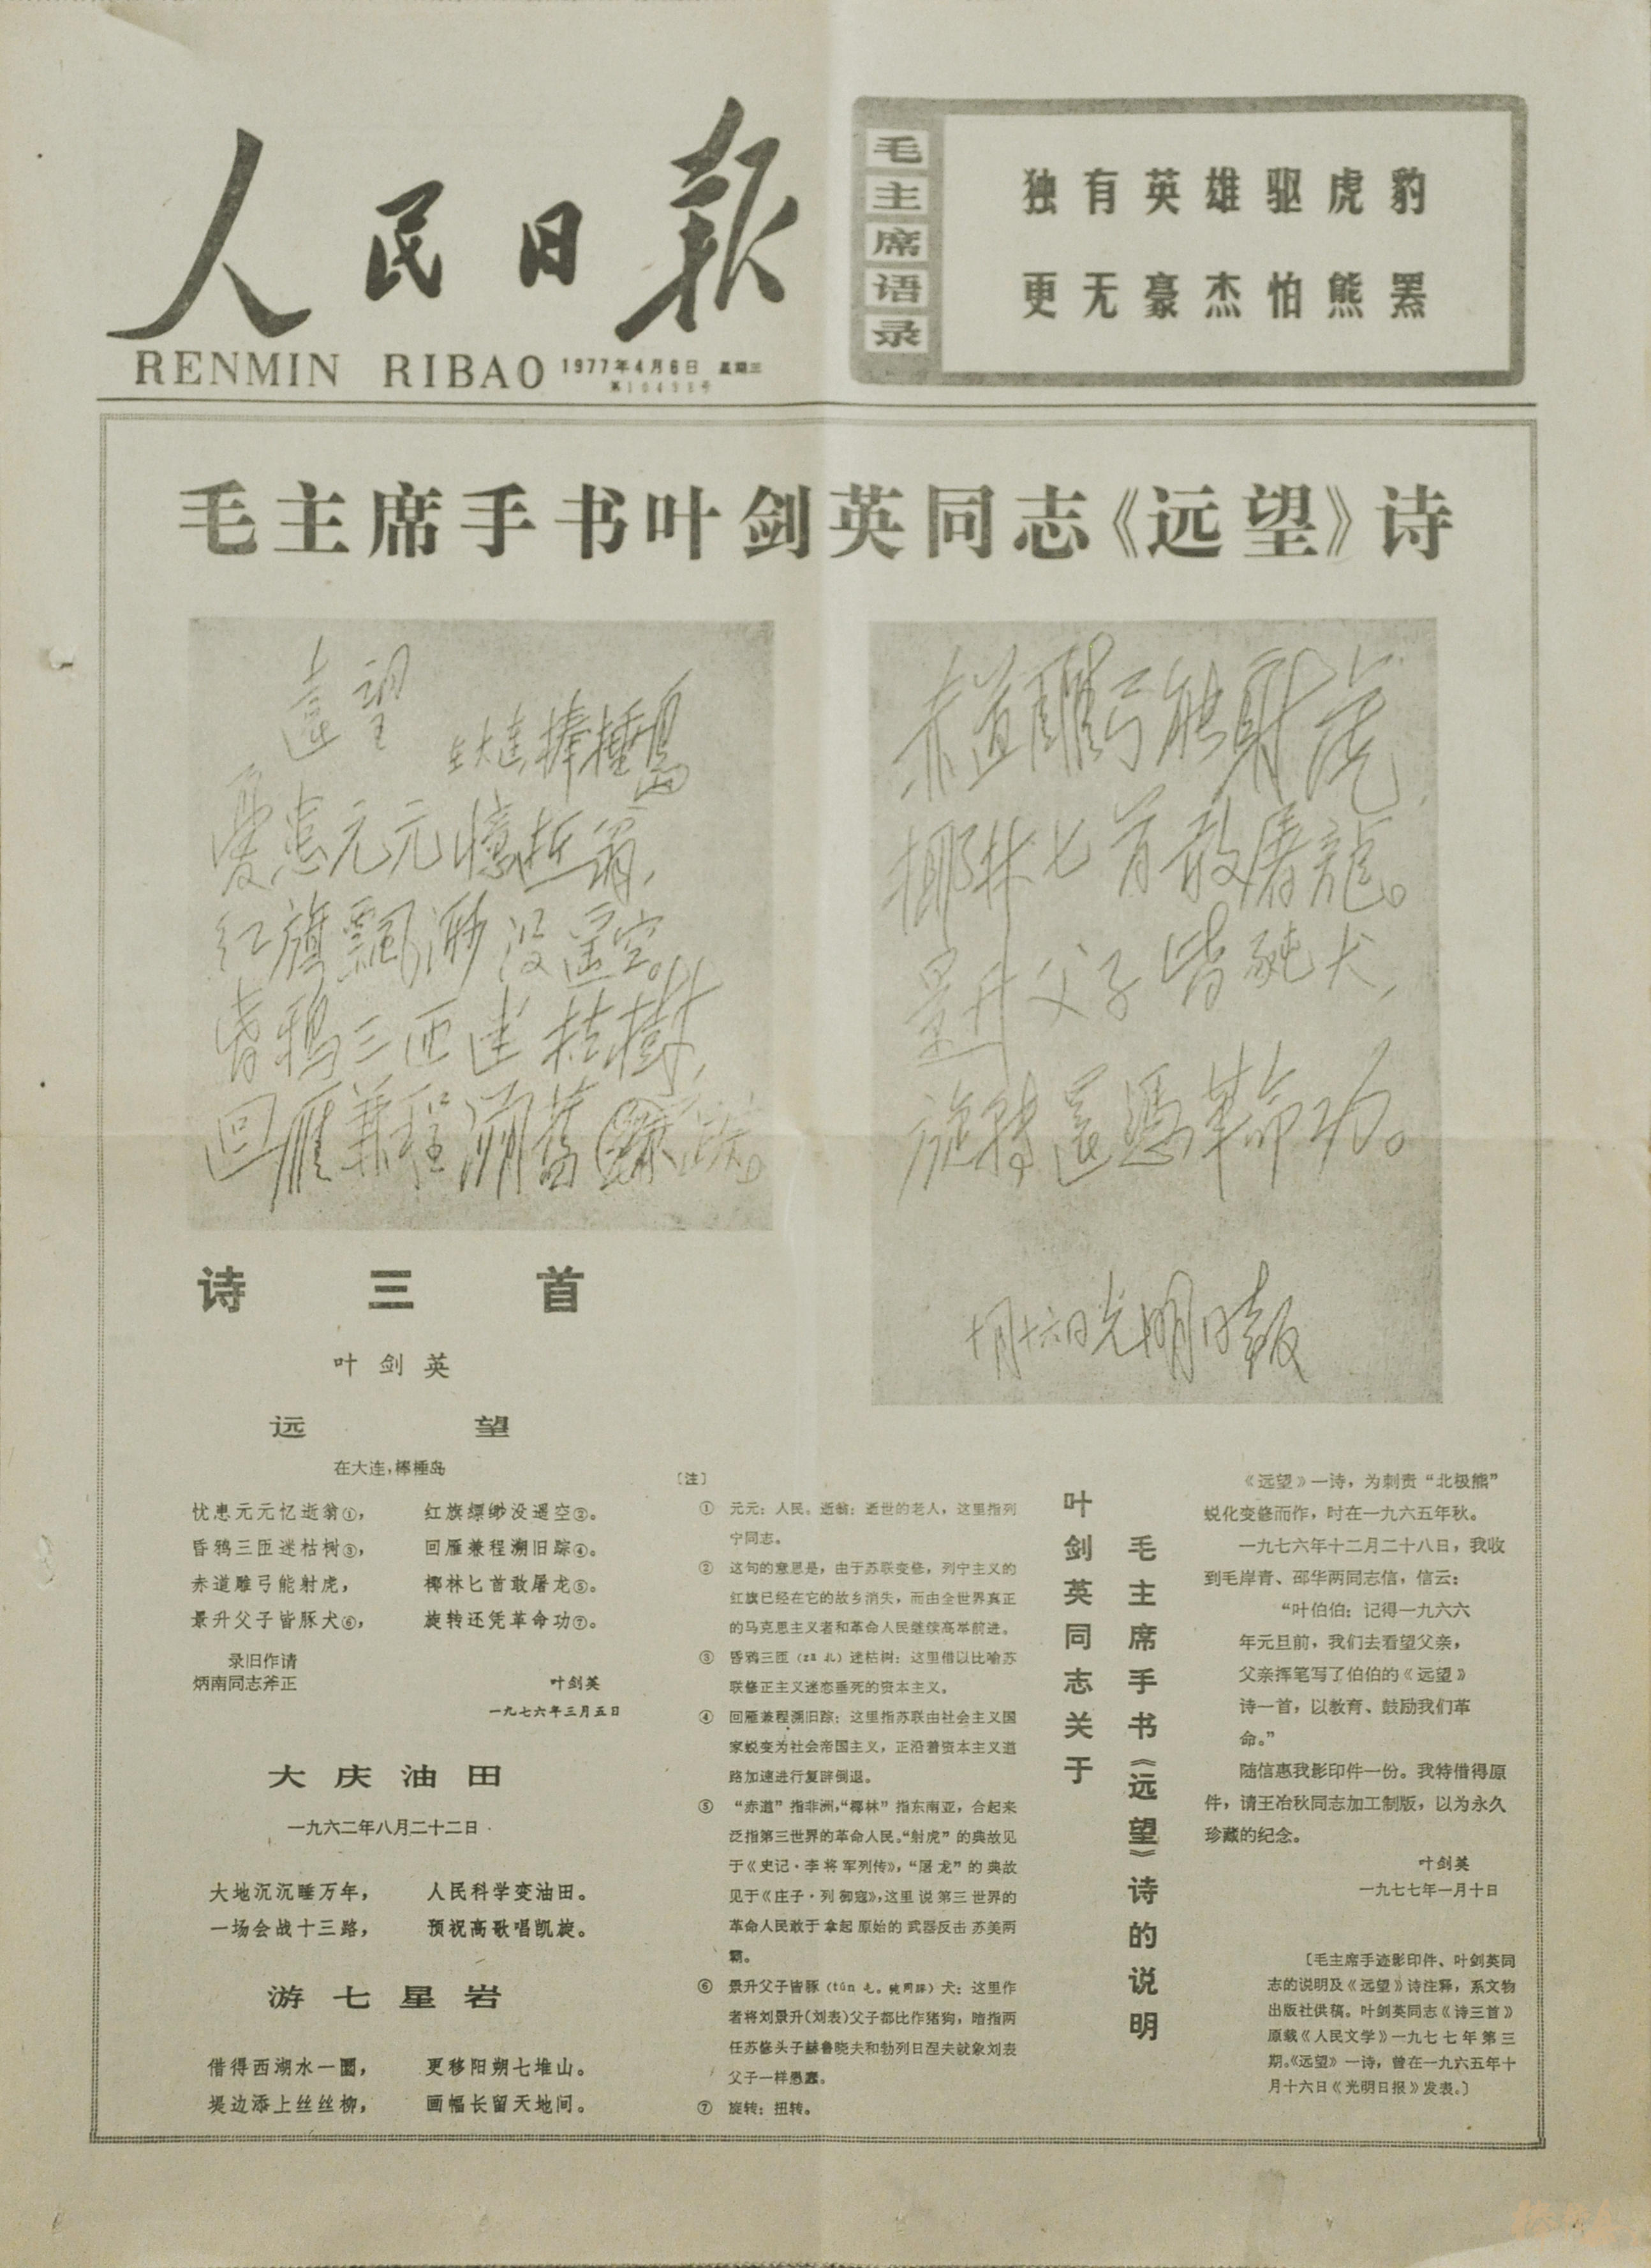 人民日报
RENMIN RIBAO
1977年4月6日 星期三
毛主席语录
独有英雄驱虎豹
更无豪杰怕熊罴
毛主席手书叶剑英同志《远望》诗
遠望
在大连棒棰島
憂患元元憶逝翁,
红旗飄渺没遥空。
昏鸦三匝迷枯樹,
回雁兼程溯舊踪。
赤道雕弓能射虎,
椰林匕首敢屠龍。
景升父子皆豚犬,
旋轉還憑革命功。
十月十六日光明日報
诗三首
叶剑英
远望
在大连,棒棰岛
忧患元元忆逝翁①, 红旗缥缈没遥空②。
昏鸦三匝迷枯树③, 回雁兼程溯旧踪④。
赤道雕弓能射虎, 椰林匕首敢屠龙⑤。
景升父子皆豚犬⑥, 旋转还凭革命功⑦。
录旧作请
炳南同志斧正
叶剑英
一九七六年三月五日
大庆油田
一九六二年八月二十二日
大地沉沉睡万年, 人民科学变油田。
一场会战十三路, 预祝高歌唱凯旋。
游七星岩
借得西湖水一圜, 更移阳朔七堆山。
堤边添上丝丝柳, 画幅长留天地间。
〔注〕
① 元元:人民。逝翁:逝世的老人,这里指列
宁同志。
② 这句的意思是,由于苏联变修,列宁主义的
红旗已经在它的故乡消失,而由全世界真正
的马克思主义者和革命人民继续高举前进。
③ 昏鸦三匝(zā 扎)迷枯树:这里借以比喻苏
联修正主义迷恋垂死的资本主义。
④ 回雁兼程溯旧踪:这里指苏联由社会主义国
家蜕变为社会帝国主义,正沿着资本主义道
路加速进行复辟倒退。
⑤ “赤道”指非洲,“椰林”指东南亚,合起来
泛指第三世界的革命人民。“射虎”的典故见
于《史记·李将军列传》,“屠龙”的典故
见于《庄子·列御寇》,这里说第三世界的
革命人民敢于拿起原始的武器反击苏美两
霸。
⑥ 景升父子皆豚(tún 屯。)犬:这里作
者将刘景升(刘表)父子都比作猪狗,暗指两
任苏修头子赫鲁晓夫和勃列日涅夫就象刘表
父子一样愚蠢。
⑦ 旋转:扭转。
叶剑英同志关于
毛主席手书《远望》诗的说明
《远望》一诗,为刺责“北极熊”
蜕化变修而作,时在一九六五年秋。
一九七六年十二月二十八日,我收
到毛岸青、邵华两同志信,信云:
“叶伯伯:记得一九六六
年元旦前,我们去看望父亲,
父亲挥笔写了伯伯的《远望》
诗一首,以教育、鼓励我们革
命。”
随信惠我影印件一份。我特借得原
件,请王冶秋同志加工制版,以为永久
珍藏的纪念。
叶剑英
一九七七年一月十日
〔毛主席手迹影印件、叶剑英同
志的说明及《远望》诗注释,系文物
出版社供稿。叶剑英同志《诗三首》
原载《人民文学》一九七七年第三
期。《远望》一诗,曾在一九六五年十
月十六日《光明日报》发表。〕